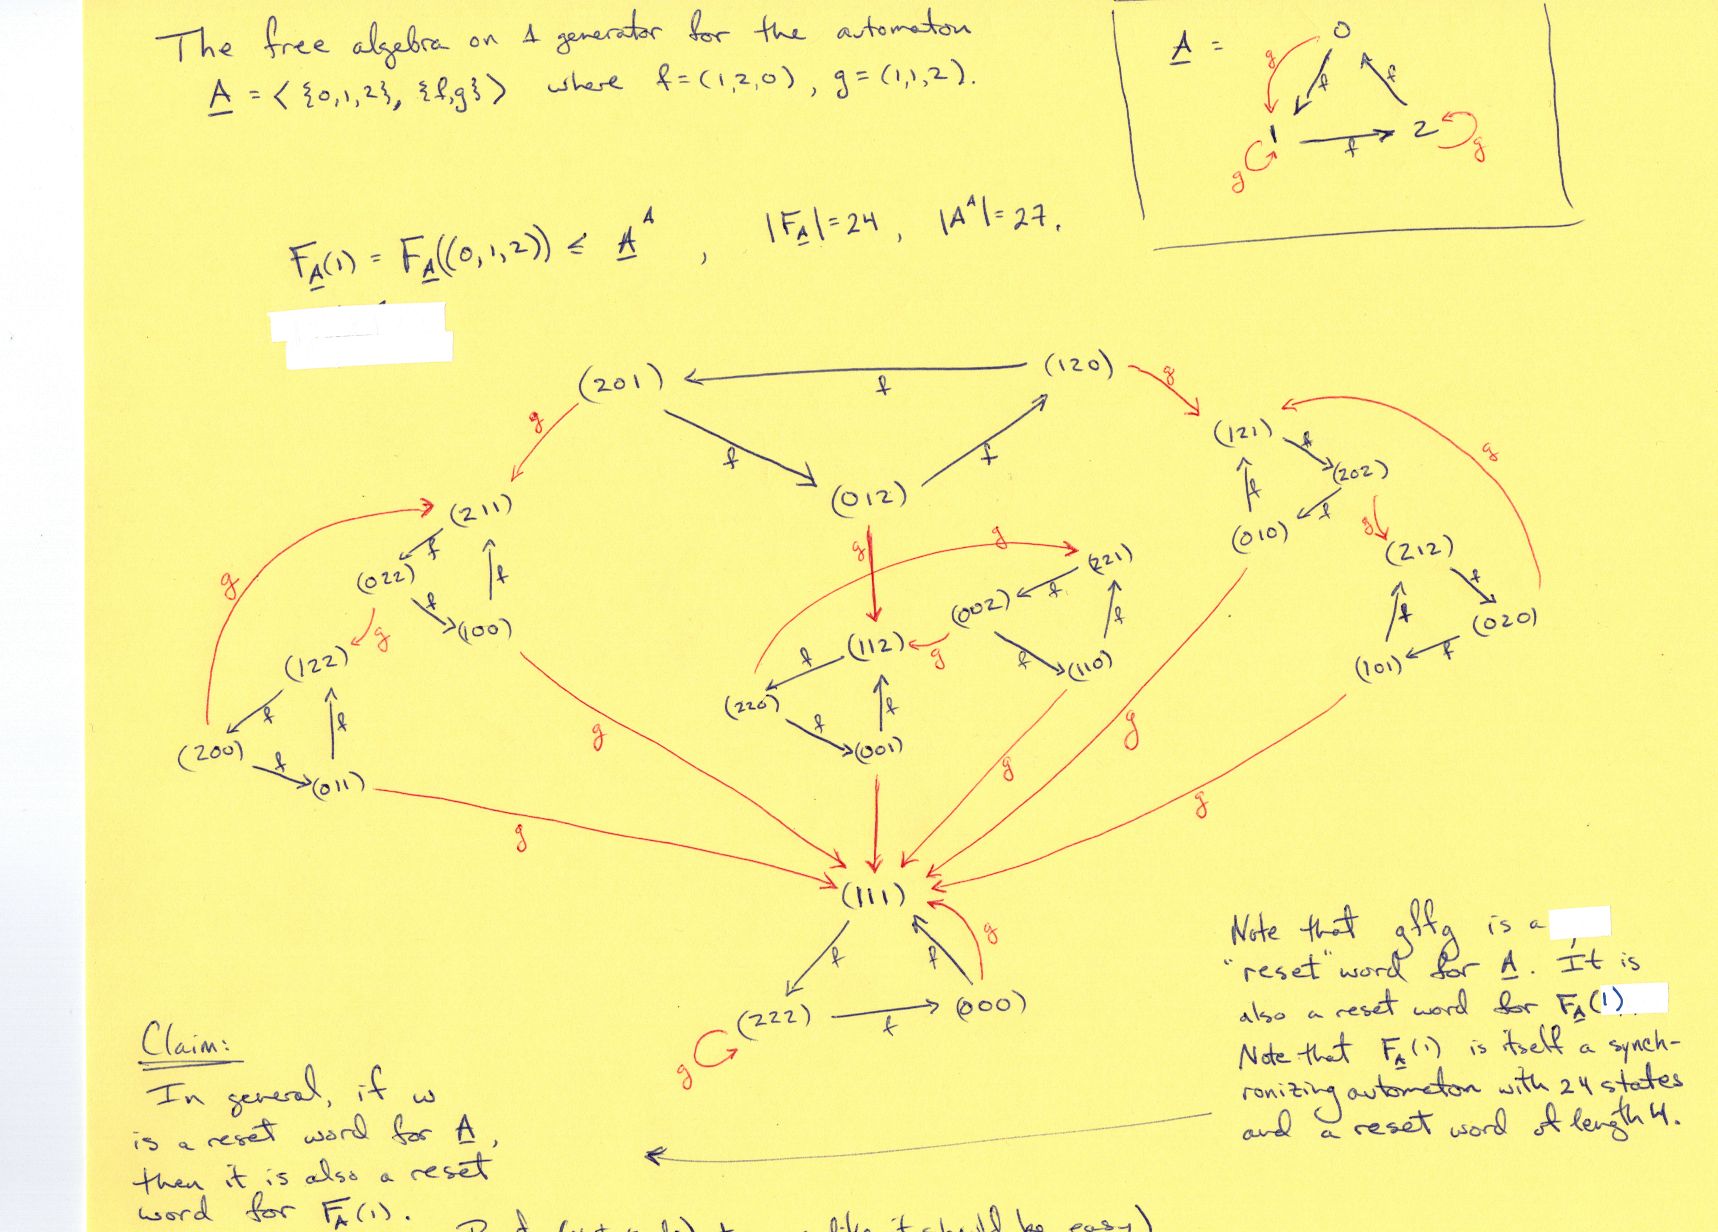 The free algebra on 1 generator for the automaton
A = < {0,1,2}, {f,g} > where f = (1,2,0), g = (1,1,2).
A =
0
g
f
f
1
f
2
g
g
F_A(1) = F_A((0,1,2)) ≤ A^A, |F_A| = 24, |A^A| = 27.
(201)
f
(120)
g
g
f
f
(121)
f
g
(202)
(012)
f
f
(211)
g
g
(010)
g
(212)
f
(221)
f
(022)
f
f
g
(002)
f
f
f
(020)
f
(100)
(112)
g
f
(110)
(101)
f
g
(122)
f
f
(220)
f
f
f
f
(001)
g
g
(200)
f
(011)
g
g
g
g
(111)
f
f
g
(222)
f
(000)
g
Note that gffg is a
"reset" word for A. It is
also a reset word for F_A(1)
Note that F_A(1) is itself a synch-
ronizing automaton with 24 states
and a reset word of length 4.
Claim:
In general, if w
is a reset word for A,
then it is also a reset
word for F_A(1).
like it should be easy)